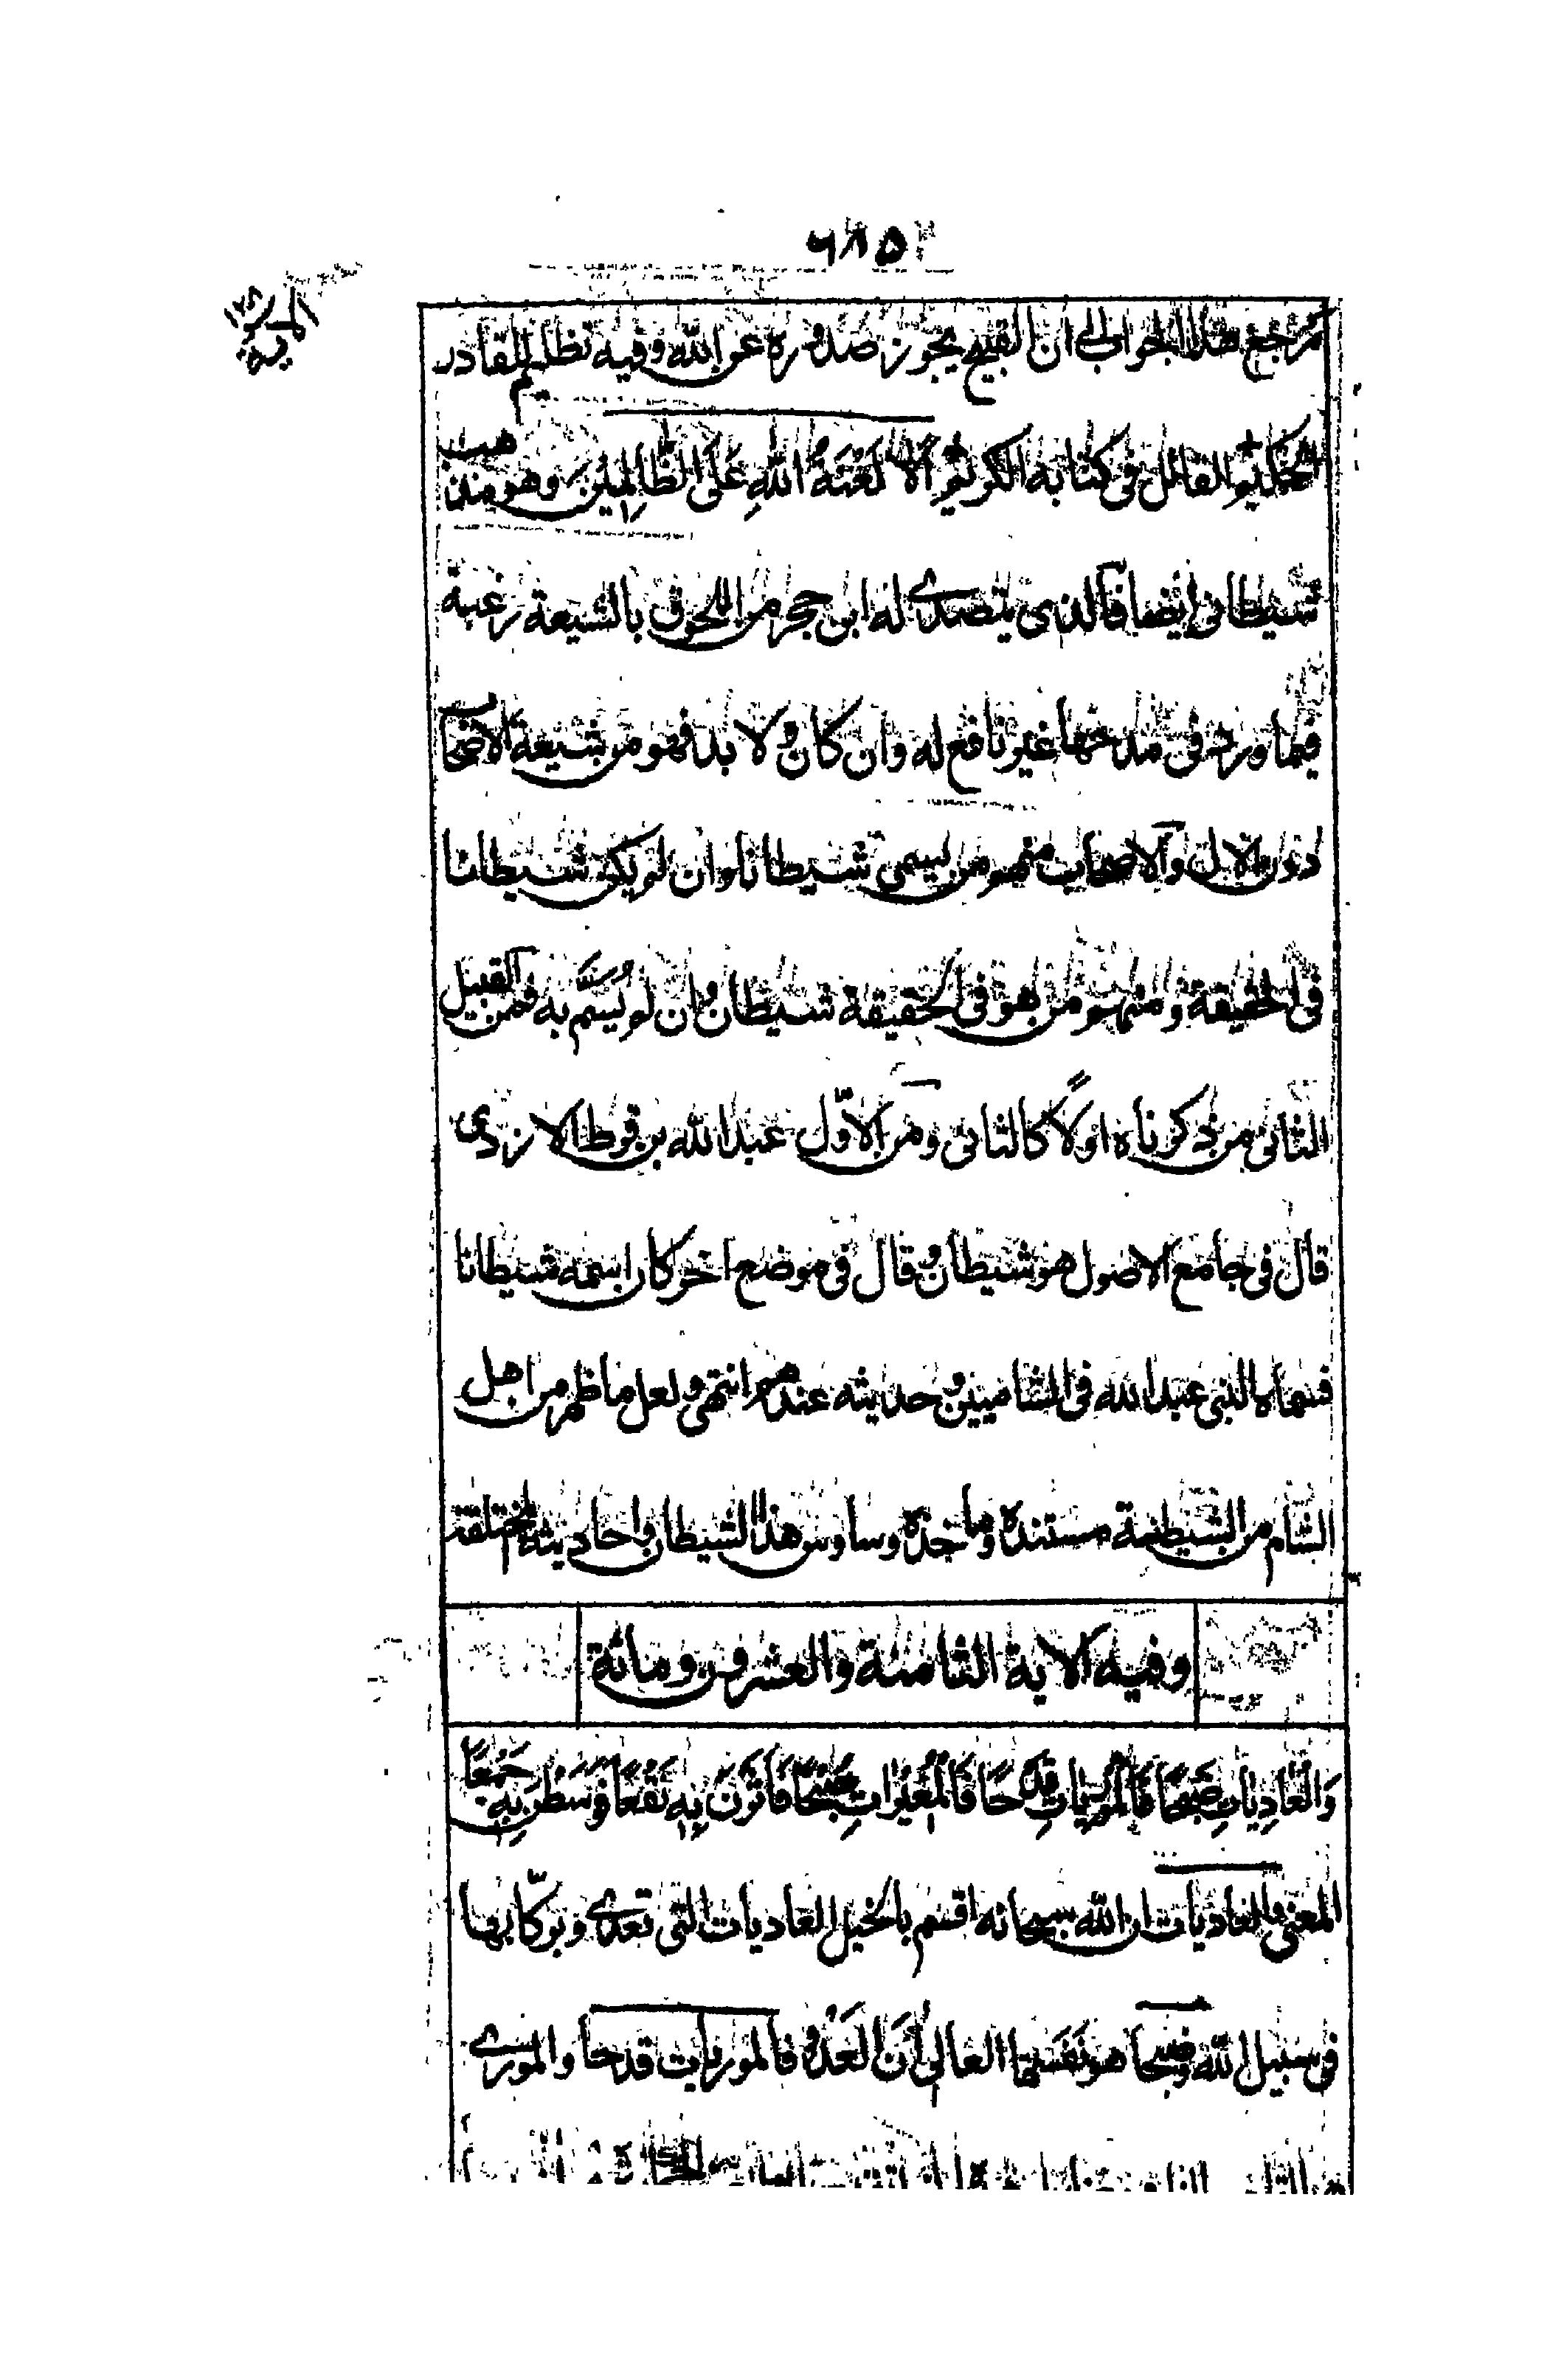 ٦٨٥
مرجع هذا الجواب الى ان القبيح يجوز صدوره عن الله وفيه تظليم للقادر
الحكيم القائل في كتابه الكريم أَلَا لَعْنَةُ اللهِ عَلَى الظَّالِمِينَ وهو مذهب
شيطاني ايضا فالذي يتصدى له ابن حجر من اللحوق بالشيعة رغبة
فيما ورد في مدحها غير نافع له وان كان ولا بد فهو من شيعة الاصحاب
دون الال والاصحاب منهم من يسمى شيطانا وان لم يكن شيطانا
في الحقيقة ومنهم من هو في الحقيقة شيطان وان لم يُسَمَّ به فمن القبيل
الثاني من ذكرناه اولاً كالثاني ومن الاوّل عبد الله بن قرط الازدي
قال في جامع الاصول هو شيطان وقال في موضع اخر كان اسمه شيطانا
فسماه النبي عبد الله في الشاميين وحديثه عندهم انتهى ولعل ما ظهر من اهل
الشام من الشيطنة مستنده وماخذه وساوس هذا الشيطان واحاديثه المختلقة
وفيه الاية الثامنة والعشرون ومائة
وَالْعَادِيَاتِ ضَبْحًا فَالْمُورِيَاتِ قَدْحًا فَالْمُغِيرَاتِ صُبْحًا فَأَثَرْنَ بِهِ نَقْعًا فَوَسَطْنَ بِهِ جَمْعًا
المعني بالعاديات ان الله سبحانه اقسم بالخيل العاديات التي تعدى وبركّابها
في سبيل الله وضبحا هو نفسها العالي أن العَدْو فالموريات قدحا والمورى